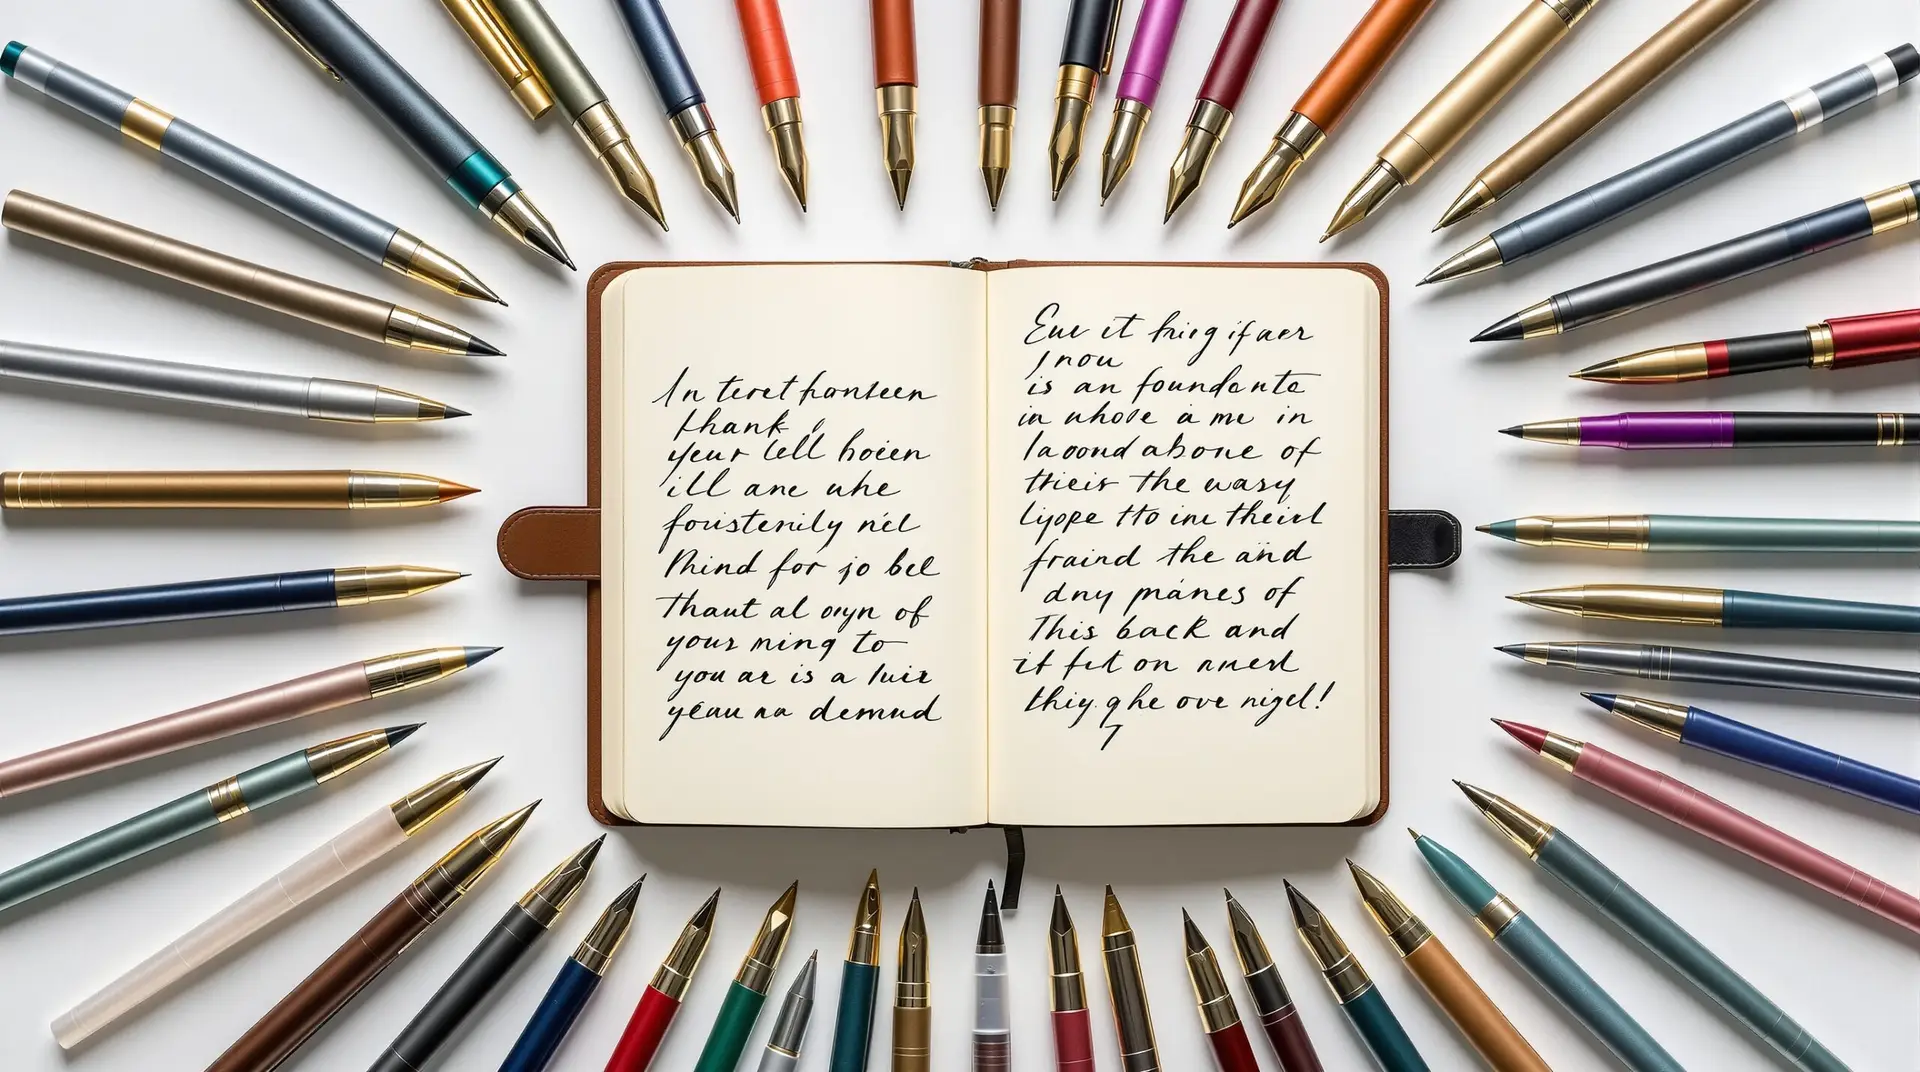 In teret fonteen
thank,
your lell hoien
ill ane uhe
foristenily nel
Mind for jo bel
Thaut al oyn of
your ning to
you ar is a luir
yéau na demud
Eue it hirg if aer
I nou
is an foundante
in uhole a me in
la oond abone of
thieir the wasy
lijope tto ine theirl
fraind the änd
dny piánes of
This back and
it fet on nuerl
thiy ghe ove nigel!